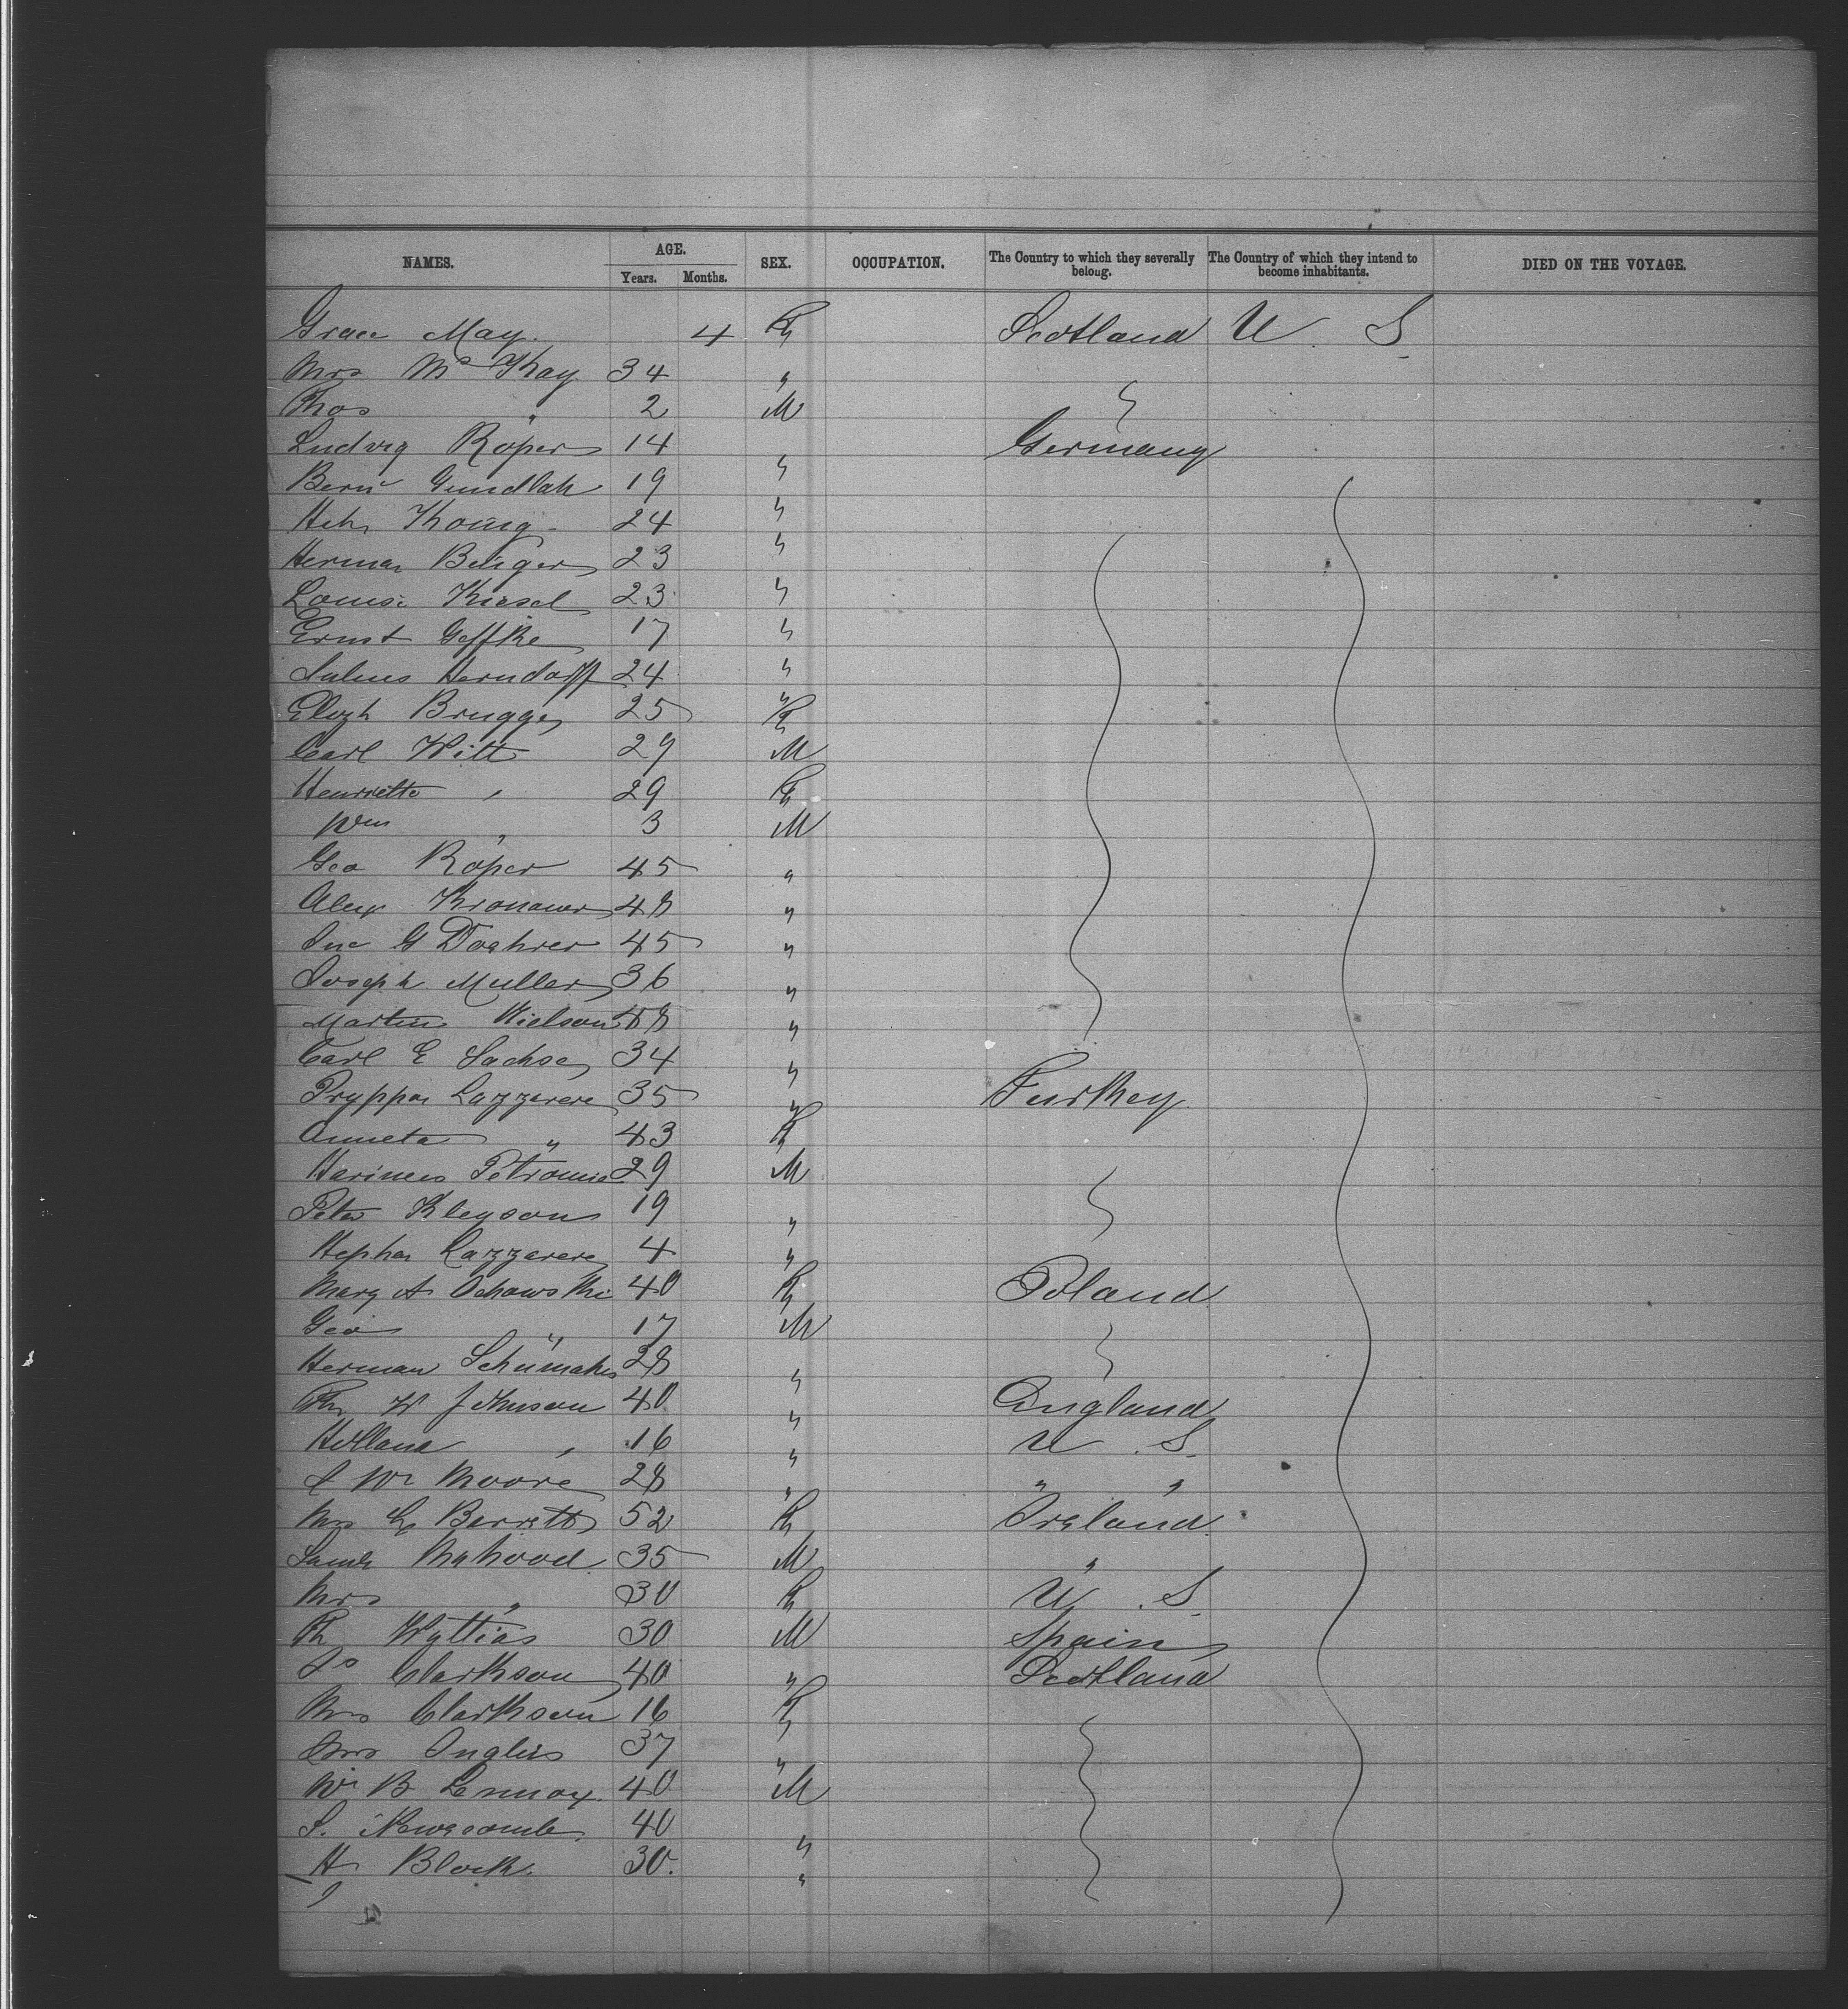 NAMES. AGE. Years. Months. SEX. OCCUPATION. The Country to which they severally belong. The Country of which they intend to become inhabitants. DIED ON THE VOYAGE.
Grace May. 4 F Scotland U. S.
Mrs Mc Kay 34 "
Thos " 2 M
Ludvig Röper 14 Germany
Gundlah 19 "
Koenig 24 "
Herman 23 "
Louis Kiesel 23 "
Ernst Geffke 17 "
Julius Herndorff 24 "
Brugge 25 F
Carl Witt 29 M
Henriette " 29 F
Wm " 3 M
Geo Röper 45 "
Alex Kronauer 48 "
Jno G Doehrer 45 "
Joseph Muller 36 "
Martin Nielson 48 "
Carl E Sachse 34 "
Lazzarere 35 " Turkey
Anneta " 43 F
Petronie 29 M
Peter Kleysons 19 "
Lazzarere 4 "
Mary A Ochowski 40 F Poland
Geo " 17 M
Herman Schumaker 28 "
W Johnson 40 " England
Holland " 16 " U. S.
Moore 28 " " "
Mrs Barrett 52 F Ireland
Mahood 35 M "
Mrs " 30 F U. S.
30 M Spain
Clarkson 40 " Scotland
Mrs Clarkson 16 F
Mrs Inglis 37 "
Wm B Lennox. 40 M
S. Newscomb. 40 "
H Block. 30. "